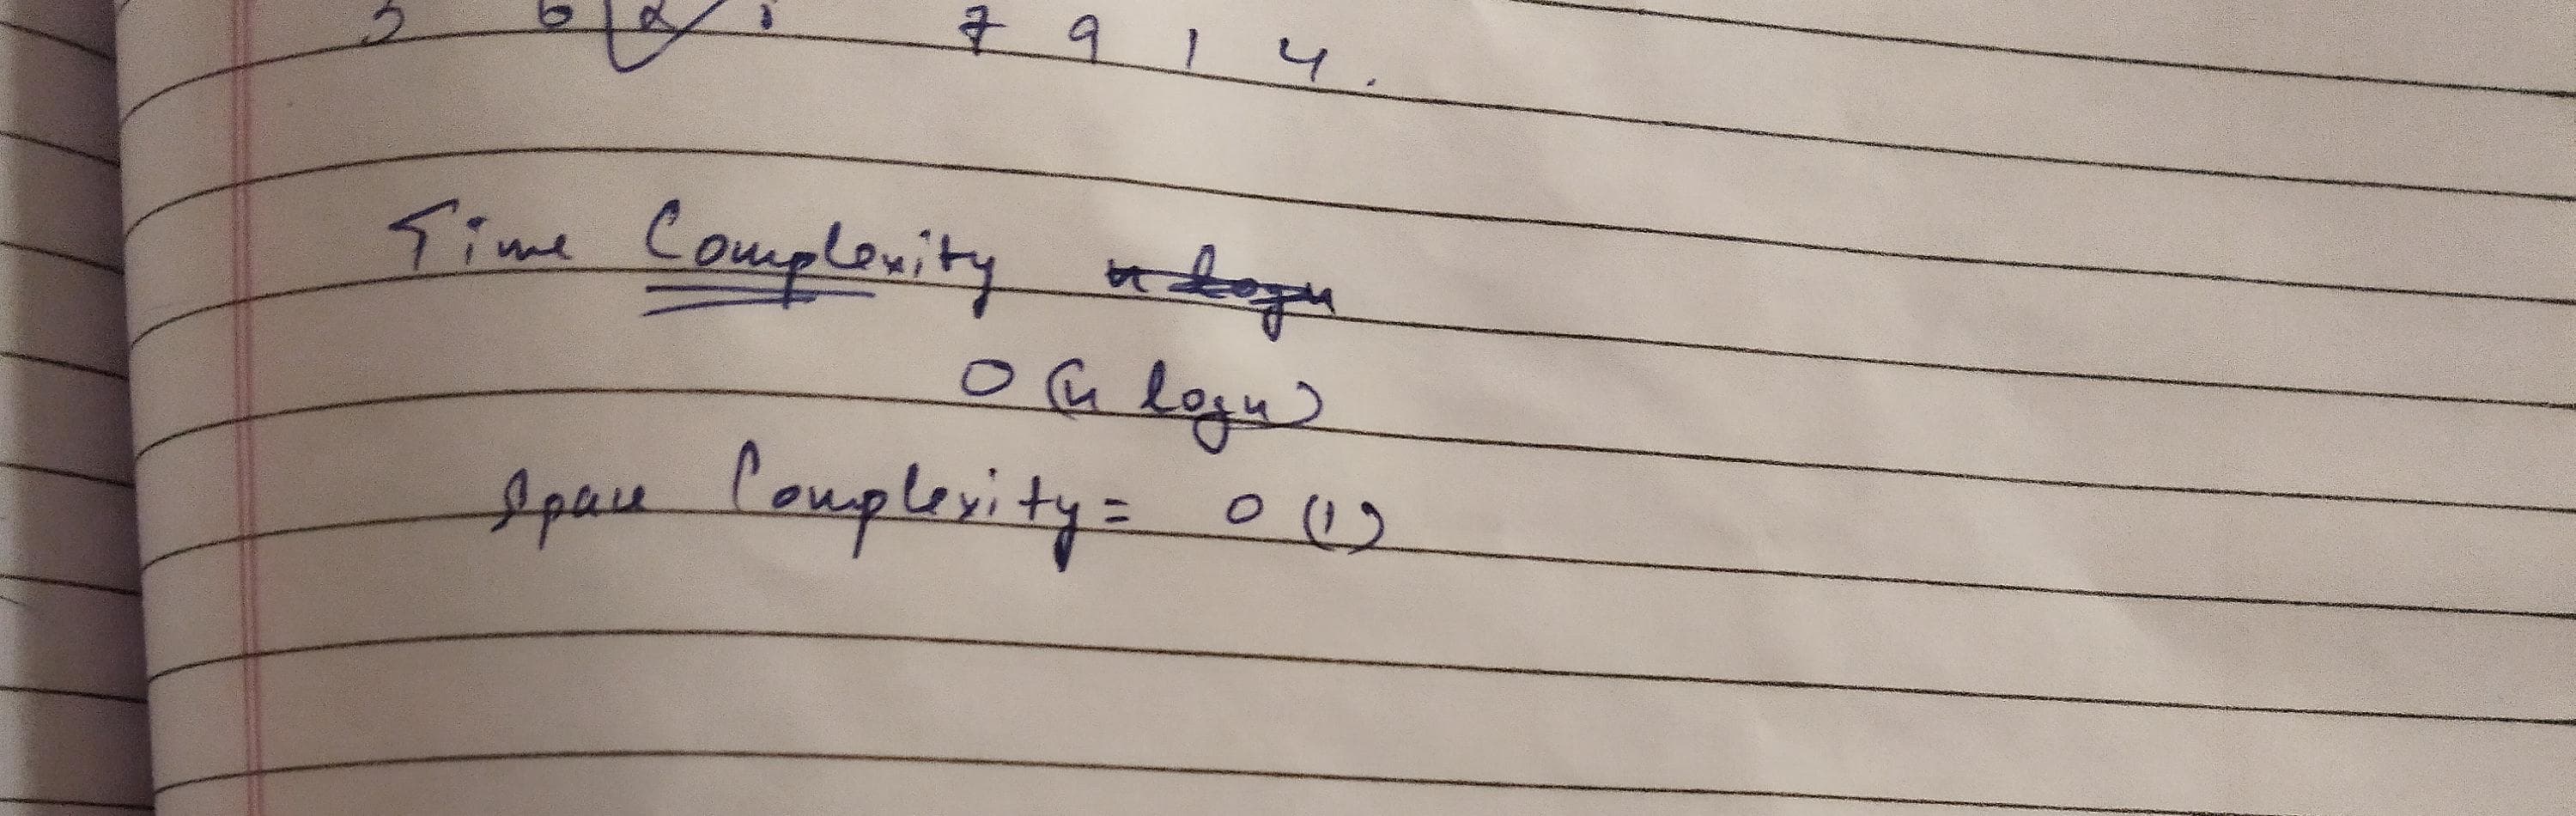 5 6 2 1 7 9 1 4.
Time Complexity n logn
O (n logn)
Space Complexity = O (1)